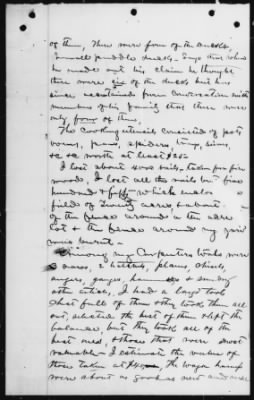 of them, there were four of the ducks,
small puddle ducks - Says that when
he made out his claim he thought
there were six of the ducks but has
since ascertained from conversation with
members of his family that there were
only four of them.
The cooking utensils consisted of pots
ovens, pans, spiders, tongs, irons,
&c &c worth at least $25
I lost about 4000 rails, taken for fire
wood. I lost all the rails but five
hundred & fifty which made
field of twenty acres & about
of the fence around a ten acre
lot & the fence around my yard
were burnt.
Among my Carpenters tools were
saws, 2 hatchets, planes, chisels
augers, gauges hammers & sundry
other articles, I had a large tool
chest full of them & they took them all
out, selected the best of them & left the
balance, but they took all of the
best ones, & those that were most
valuable - I estimate the value of
those taken at the wagon harness
were about as good as new and were